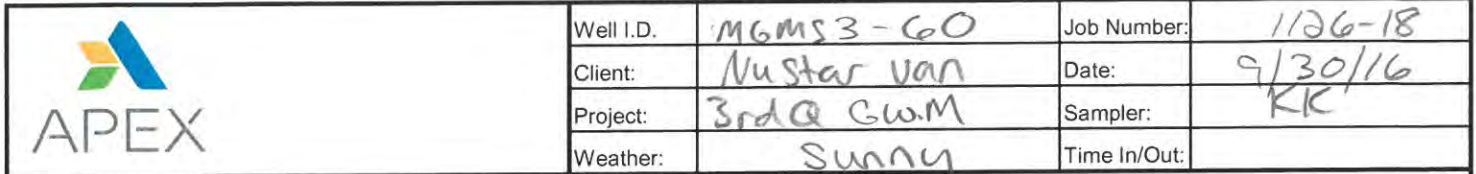 Well I.D. MGMS3-60 Job Number: 1126-18
Client: NuStar Van Date: 9/30/16
Project: 3rdQ GWM Sampler: KK
Weather: Sunny Time In/Out:
APEX